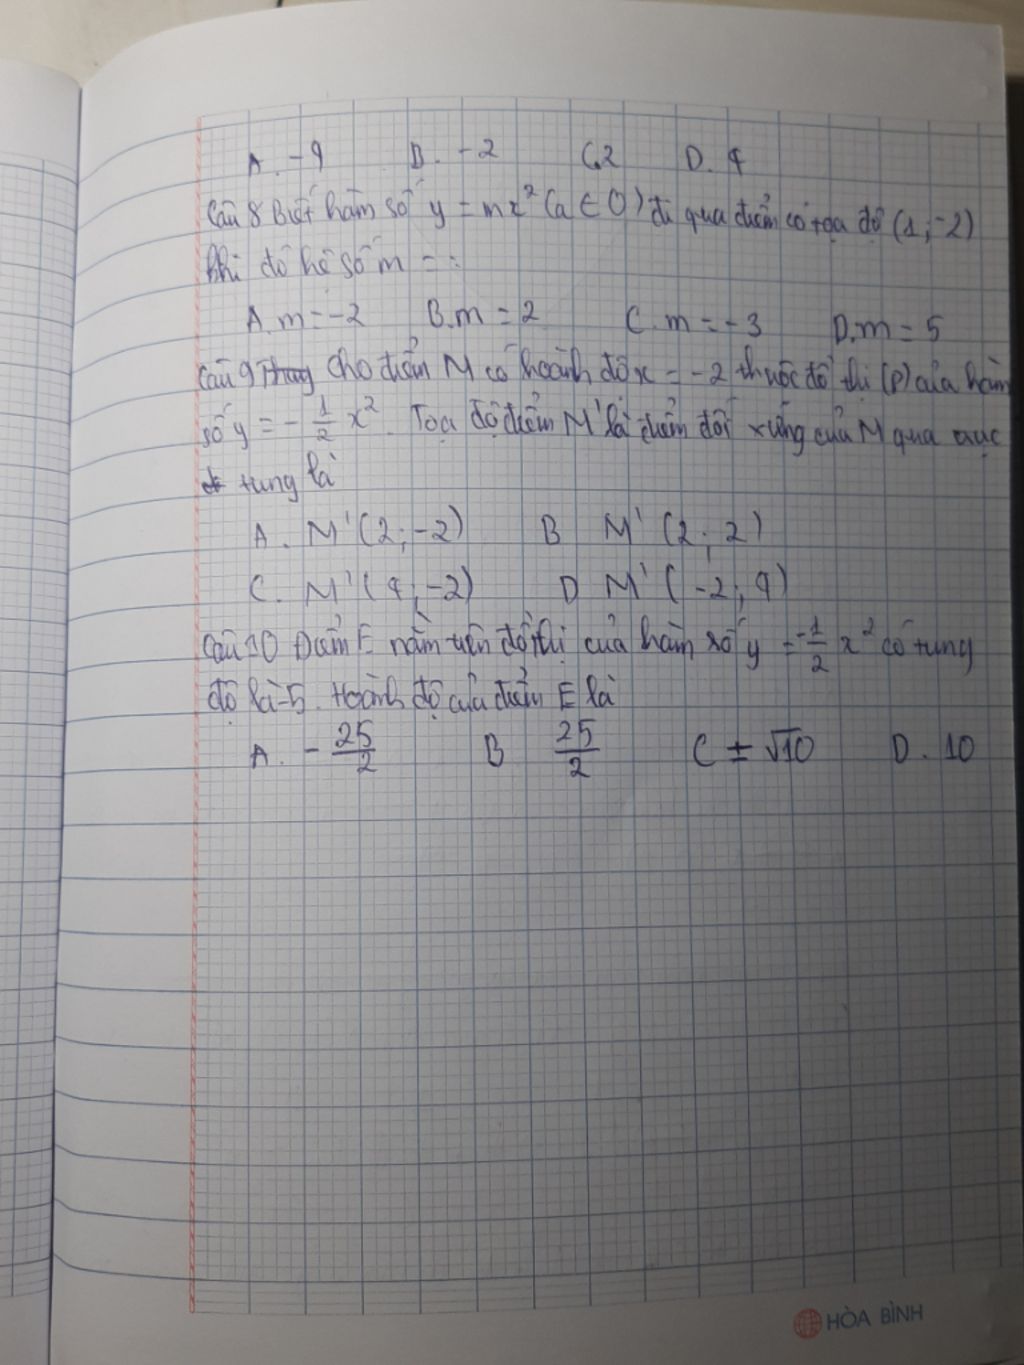 A. -4 B. -2 C.2 D. 4
Câu 8 Biết hàm số y = mx² (a ∈ 0) đi qua điểm có tọa độ (1; -2)
khi đó hệ số m = :
A. m = -2 B. m = 2 C. m = -3 D. m = 5
Câu 9 cho điểm M có hoành độ x = -2 thuộc đồ thị (P) của hàm
số y = -1/2 x². Tọa độ điểm M' là điểm đối xứng của M qua trục
tung là
A. M' (2; -2) B M' (2; 2)
C. M' (4; -2) D M' (-2; 4)
Câu 10 Điểm E nằm trên đồ thị của hàm số y = -1/2 x² có tung
độ là -5. Hoành độ của điểm E là
A. -25/2 B 25/2 C ±√10 D. 10
HÒA BÌNH